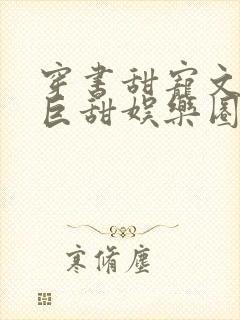 穿书甜宠文
巨甜娱乐圈
寒脩尘